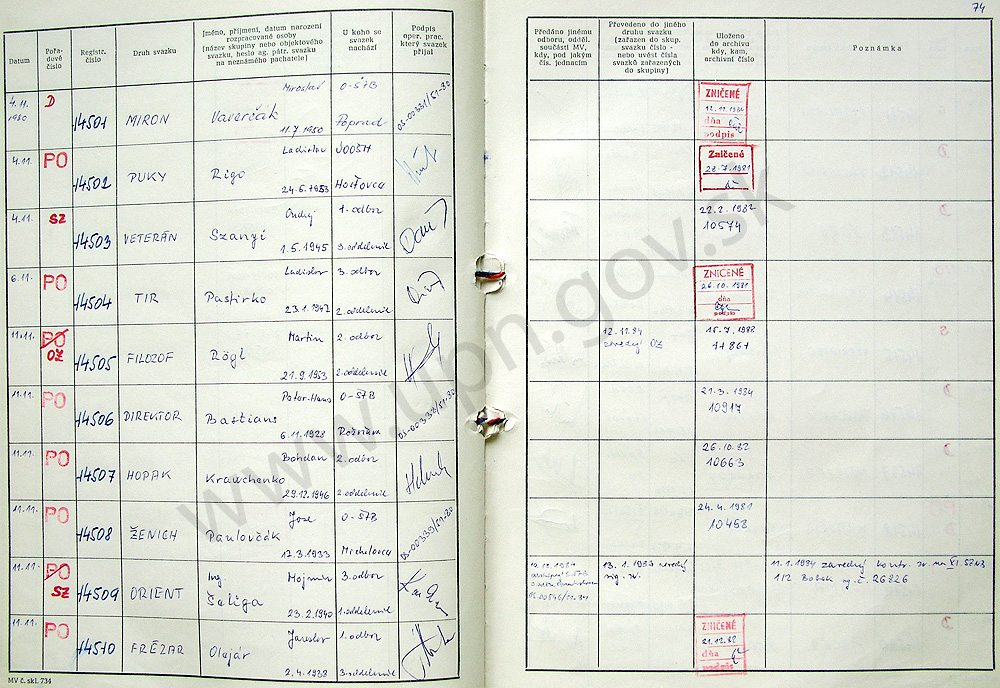 74
Datum
Pořa-
dové
číslo
Registr.
číslo
Druh svazku
Jméno, příjmení, datum narození
rozpracované osoby
(název skupiny nebo objektového
svazku, heslo ag. pátr. svazku
na neznámého pachatele)
U koho se
svazek
nachází
Podpis
oper. prac.
který svazek
přijal
Předáno jinému
odboru, odděl.
součásti MV,
kdy, pod jakým
čís. jednacím
Převedeno do jiného
druhu svazku
(zařazen do skup.
svazku číslo -
nebo uvést čísla
svazků zařazených
do skupiny)
Uloženo
do archivu
kdy, kam,
archivní číslo
Poznámka
4.11.
1980
D
14501
MIRON
Miroslav
Vaverčák
11.7.1950
O-ŠTB
Poprad
ZNIČENÉ
dňa
podpis
4.11.
PO
14502
PUKY
Ladislav
Rigo
24.6.1953
Zničené
28.7.1981
4.11.
SZ
14503
VETERÁN
Ondrej
Szangi
1.5.1945
1. odbor
3. oddelenie
22.2.1982
10574
6.11.
PO
14504
TIR
Ladislav
Pastirko
23.1.1947
3. odbor
2. oddelenie
ZNIČENÉ
26.10.1981
dňa
podpis
11.11.
PO
OZ
14505
FILOZOF
Martin
Rögl
21.9.1953
2. odbor
2. oddelenie
12.11.84
zavedený OZ
15.7.1988
11.11.
PO
14506
DIREKTOR
Peter-Hans
Bastians
6.11.1928
O-ŠTB
Rožňava
21.3.1984
10917
11.11.
PO
14507
HOPAK
Bohdan
Krawchenko
29.12.1946
2. odbor
2. oddelenie
26.10.82
10663
11.11.
PO
14508
ŽENICH
Jose
Paulovčák
12.3.1933
O-ŠTB
Michalovce
24.4.1981
10458
11.11.
PO
SZ
14509
ORIENT
Ing. Hojmír
Šeliga
23.2.1940
3. odbor
1. oddelenie
13.1.1983
11.1.1984 zavedený kontr. zv. na XI. SZNB
11.11.
PO
14510
FRÉZAR
Jaroslav
Olejár
2.4.1938
1. odbor
3. oddelenie
ZNIČENÉ
21.12.82
dňa
podpis
MV č. skl. 734
www.upn.gov.sk